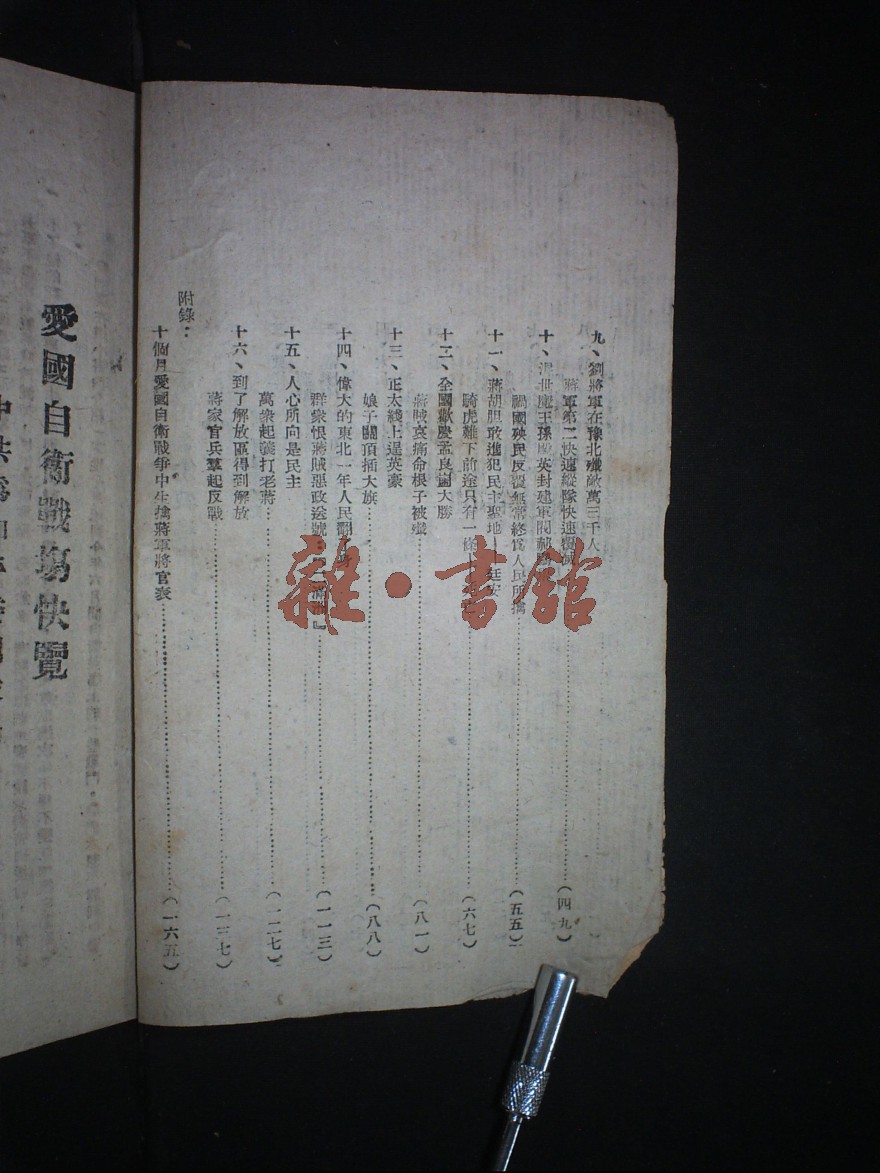 九、劉將軍在豫北殲敵萬三千人
蔣軍第二快速縱隊快速覆滅
(四九)
十、混世魔王孫殿英封建軍閥
禍國殃民反覆無常終爲人民所擒
(五五)
十一、蔣胡胆敢進犯民主聖地——延安
騎虎難下前途只有一條
(六七)
十二、全國歡慶孟良崮大勝
蔣賊哀痛命根子被殲
(八一)
十三、正太綫上逞英豪
娘子關頂插大旗
(八八)
十四、偉大的東北一年人民翻身
群衆恨蔣賊惡政送號：『二滿洲』
(一一三)
十五、人心所向是民主
萬衆起義打老蔣
(一二七)
十六、到了解放區得到解放
蔣家官兵羣起反戰
(一三七)
附錄：
十個月愛國自衛戰爭中生擒蔣軍將官表
(一六五)
愛國自衛戰場快覽
雜·書館